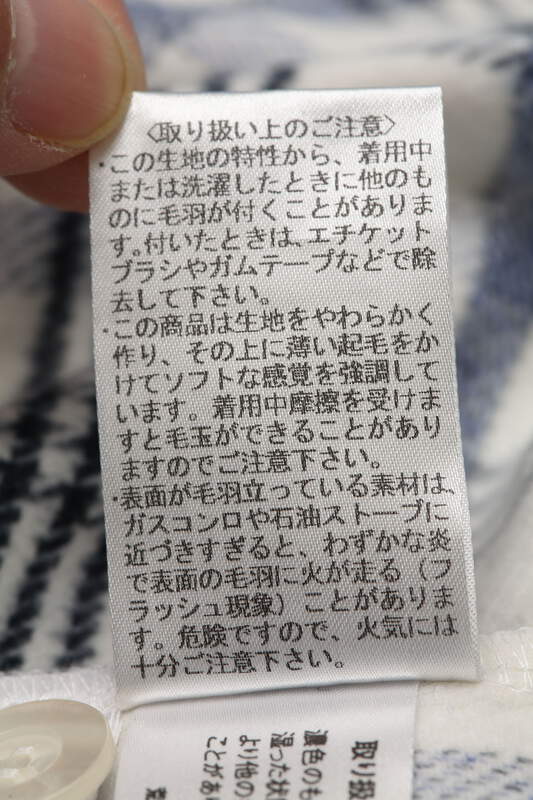 〈取り扱い上のご注意〉
・この生地の特性から、着用中
または洗濯したときに他のも
のに毛羽が付くことがありま
す。付いたときは、エチケット
ブラシやガムテープなどで除
去して下さい。
・この商品は生地をやわらかく
作り、その上に薄い起毛をか
けてソフトな感覚を強調して
います。着用中摩擦を受けま
すと毛玉ができることがあり
ますのでご注意下さい。
・表面が毛羽立っている素材は、
ガスコンロや石油ストーブに
近づきすぎると、わずかな炎
で表面の毛羽に火が走る（フ
ラッシュ現象）ことがありま
す。危険ですので、火気には
十分ご注意下さい。
取り扱
濃色のも
湿った状
より他の
ことがあ